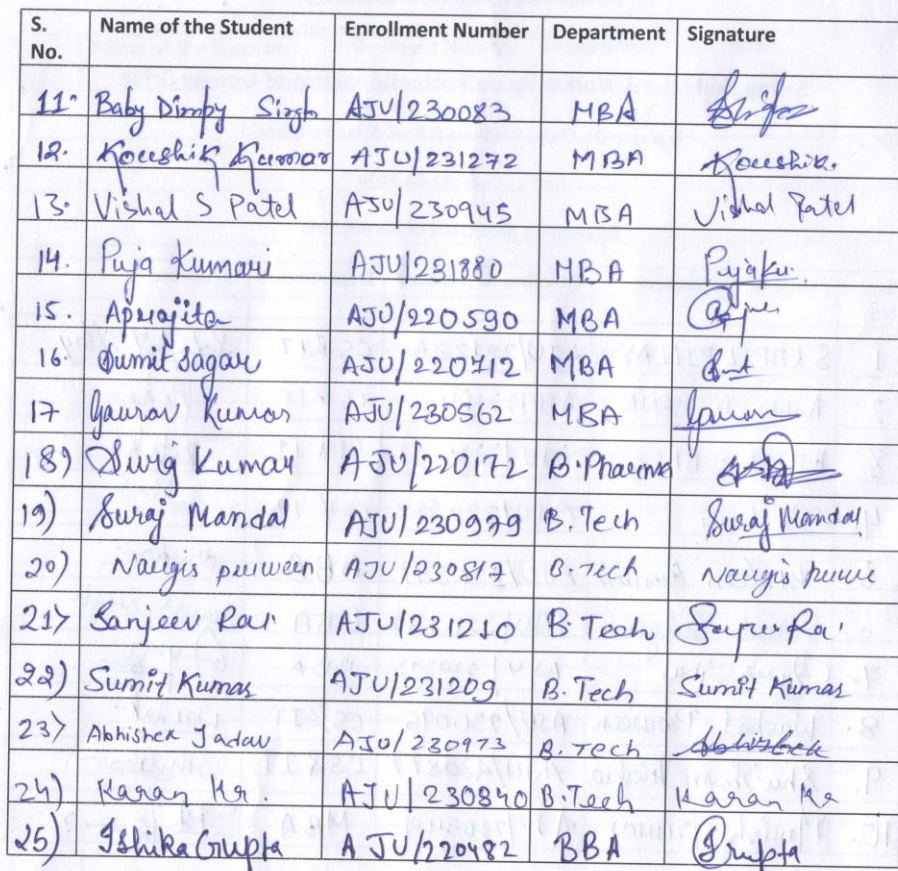 S. No. Name of the Student Enrollment Number Department Signature
11. Baby Dimpy Singh AJU/230083 MBA
12. Koushik Kumar AJU/231272 MBA Koushik.
13. Vishal S Patel AJU/230945 MBA Vishal Patel
14. Puja Kumari AJU/231880 MBA Pujaku.
15. Aprajita AJU/220590 MBA
16. Sumit Sagar AJU/220712 MBA
17 Gaurav Kumar AJU/230562 MBA
18) Suraj Kumar AJU/220172 B.Pharma
19) Suraj Mandal AJU/230979 B.Tech Suraj Mandal
20) Nargis purween AJU/230817 B.Tech Nargis
21> Sanjeev Rai AJU/231210 B.Tech Rai
22) Sumit Kumar AJU/231209 B.Tech Sumit Kumar
23> Abhishek Yadav AJU/230973 B.Tech Abhishek
24) Karan Kr. AJU/230840 B.Tech Karan Kr
25) Ishika Gupta AJU/220482 BBA Gupta